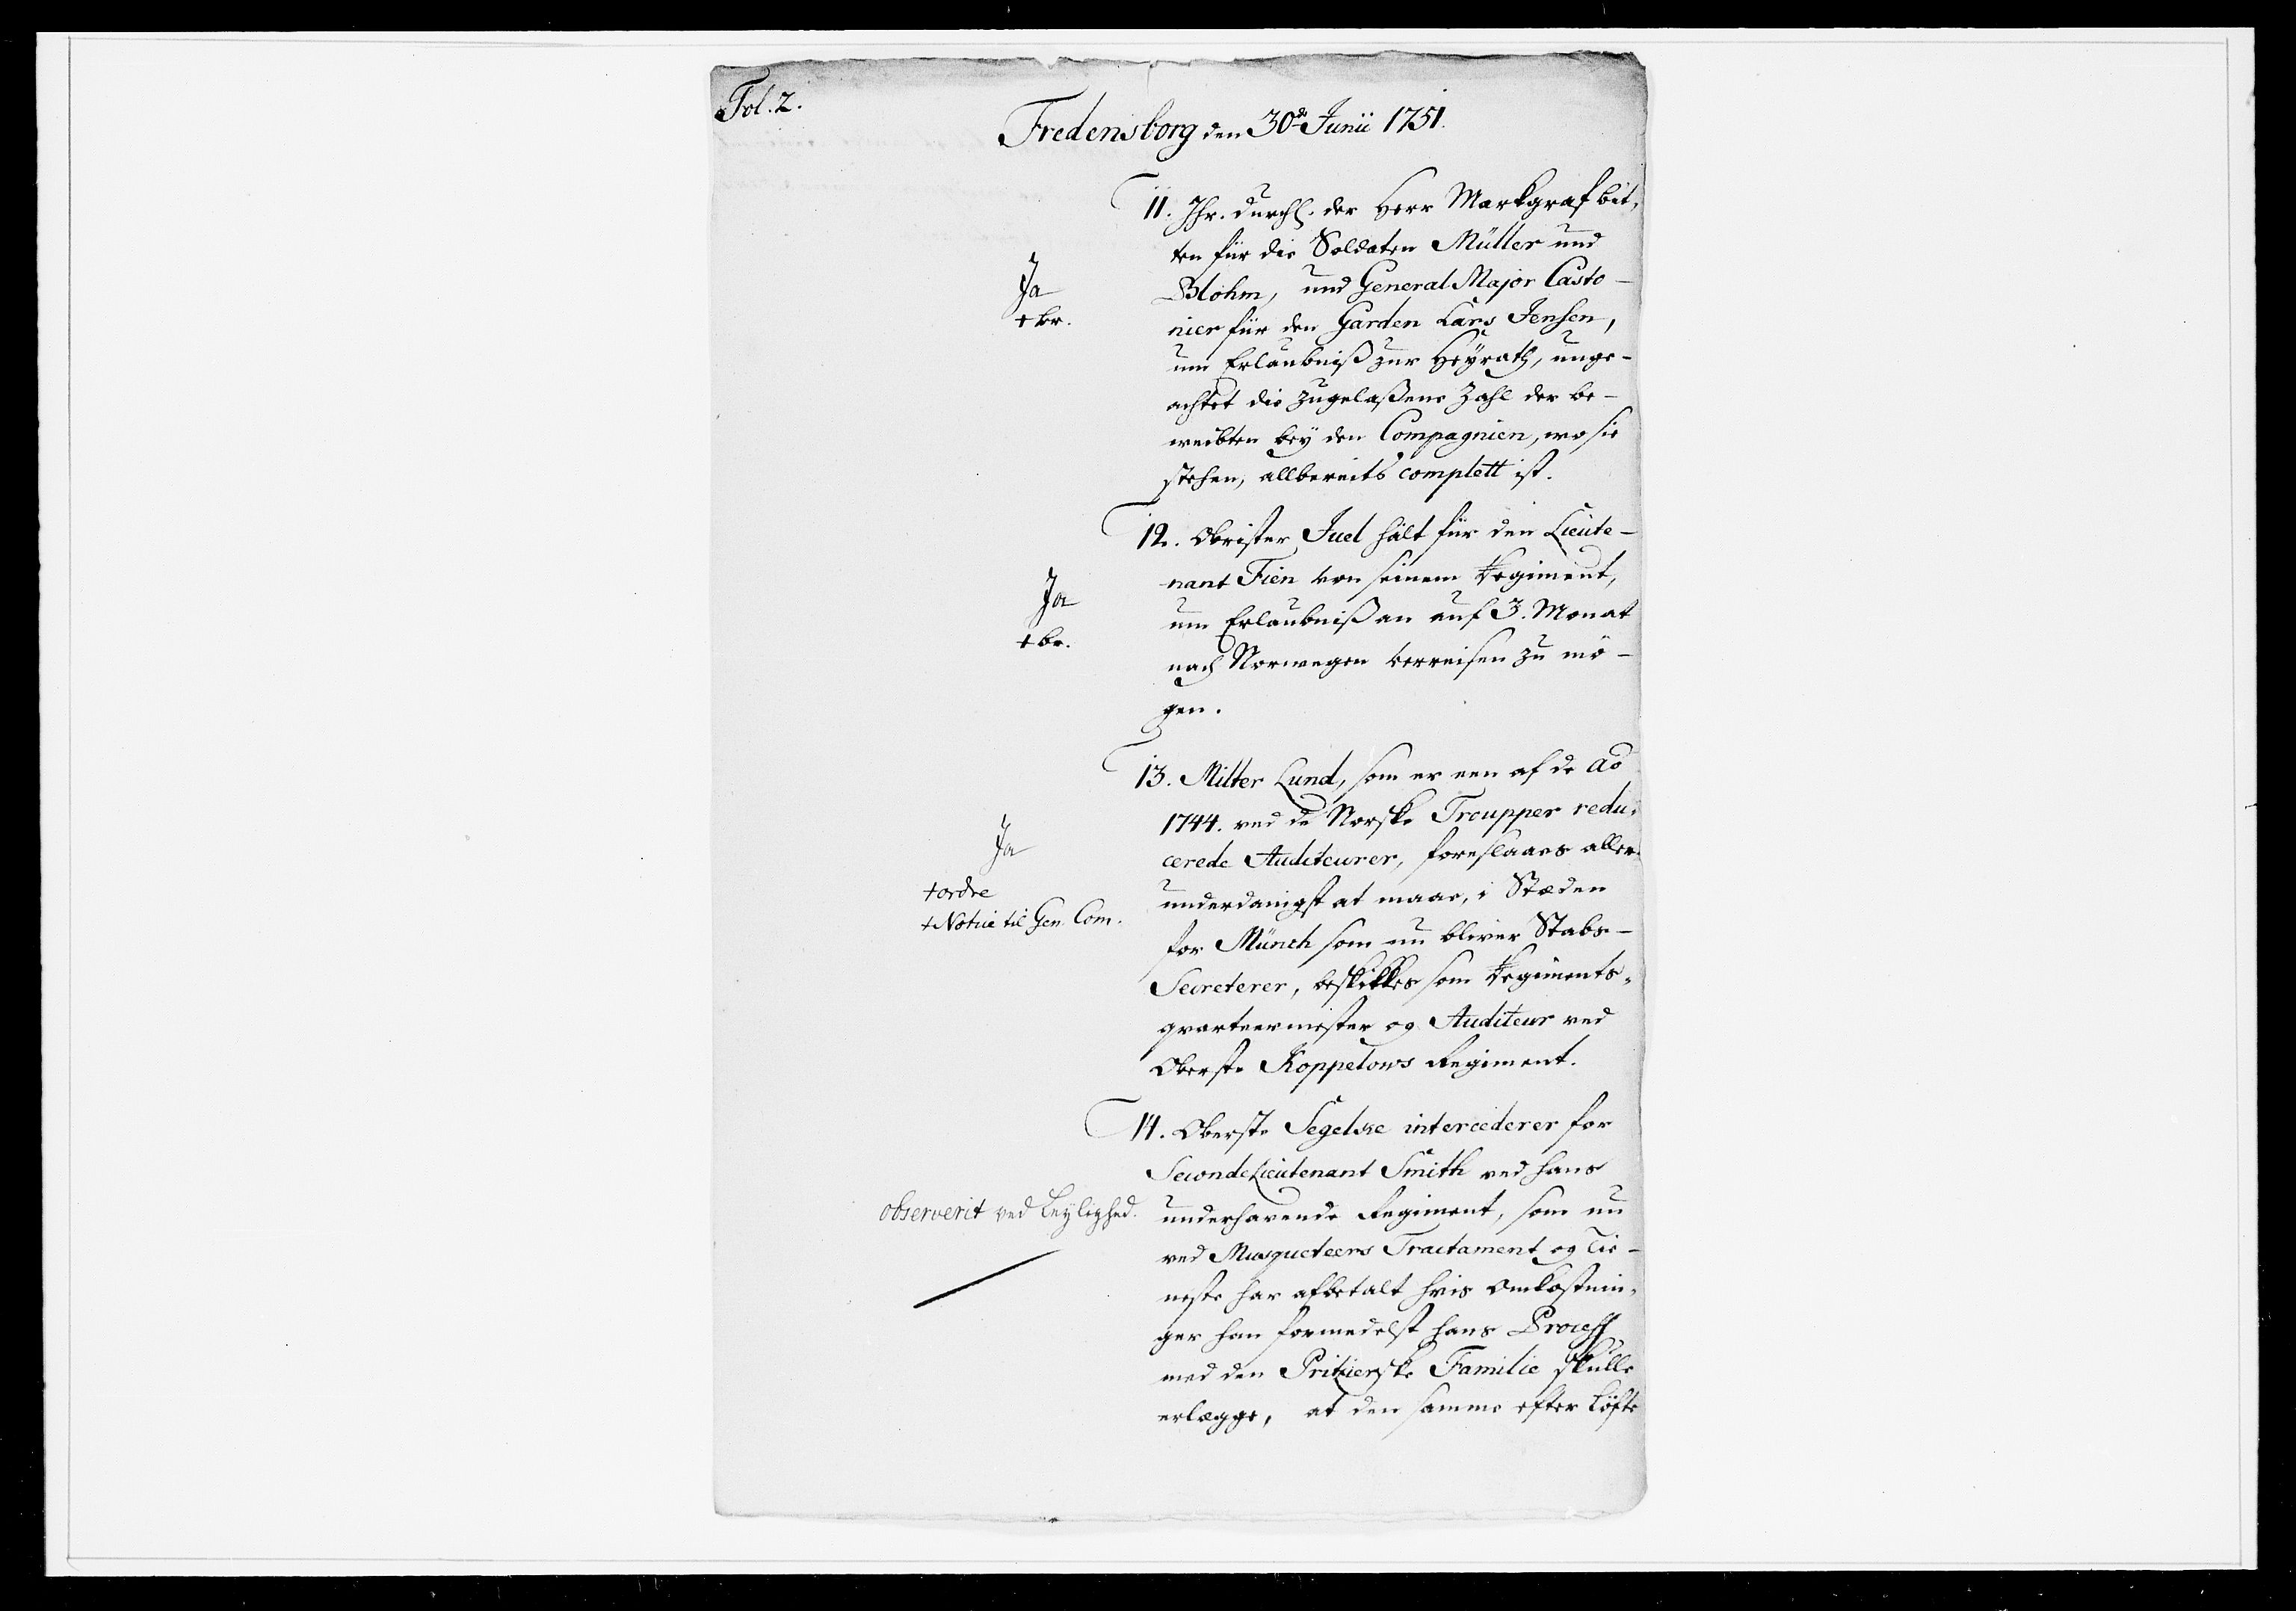 Fol. 2.
Fredensborg den 30de Junii 1751.
11. Ihr. Durchl. der Herr Markgraf bit,
ten für die Soldaten Müller und
Blöhm, und General Major Casto-
nier für den Garden Lars Jensen,
Ja
+ br.
um Erlaubniß zur Heÿrath, unge-
achtet die zugelaßene Zahl der be-
weibten beÿ den Compagnien, wo sie
stehen, allbereits complett ist.
12. Obrister Juel hält für den Lieute-
nant Fien von seinem Regiment,
um Erlaubniß an auf 3. Monat
nach Norwegen verreisen zu mö-
gen.
Ja
+ br.
13. Milter Lund, som er een af de Ao
1744. ved de Norske Troupper redu,
cerede Auditeurer, foreslaaes aller
underdanigst at maae, i Stæden
for Münch som nu bliver Stabs-
Secreterer, beskikkes som Regiments,
qvarteermester og Auditeur ved
Oberste Koppelows Regiment.
Ja
+ ordre
+ Notice til Gen. Com.
14. Oberste Segelcke intercederer for
Seconde Lieutenant Smith ved hans
underhavende Regiment, som nu
ved Musqueteers Tractament og Tie-
neste har afbetalt hvis Omkostnin,
ger han formedelst hans Process
med den Pritzierske Familie skulle
erlægge, at den samme efter Løfte
observerit ved Leÿlighed.